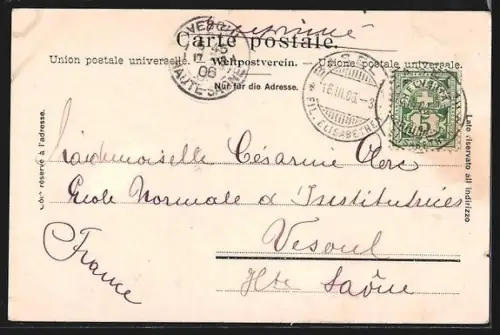 Imprimé
Carte postale.
Union postale universelle. Weltpostverein. Unione postale universale.
Nur für die Adresse.
Côté réservé à l'adresse.
Lato riservato all'indirizzo
VESOUL
06
HAUTE-SAÔNE
16.III.06.-3
FIL. ELISABETHEN
5
Mademoiselle Césarine Clerc
Ecole Normale d'Institutrices
Vesoul
Hte Saône
France